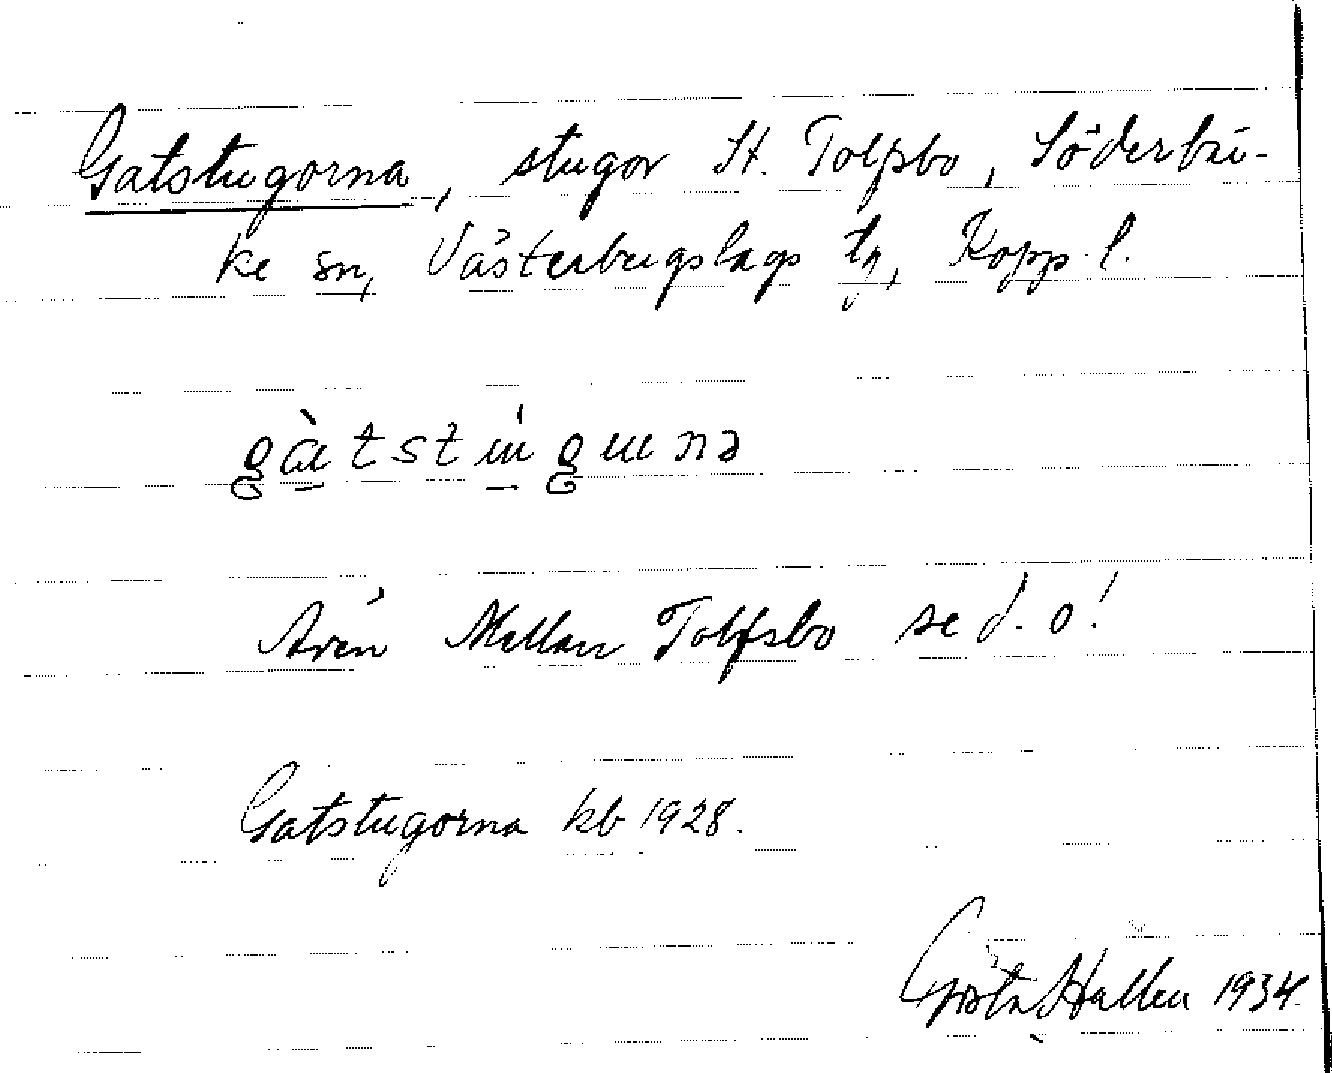 Gatstugorna, stugor St. Tolfsbo, Söderbär-
ke sn, Västerbergslags tg, Kopp. l.
gàtstúgunə
Även Mellan Tolfsbo se d. o!
Gatstugorna kb 1928.
Gösta Hallen 1934.